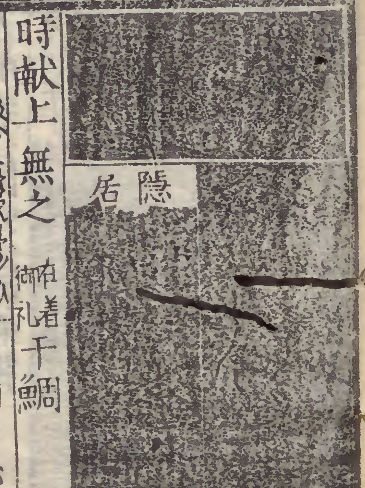 隠居
時献上 無之 在着御礼 干鯛